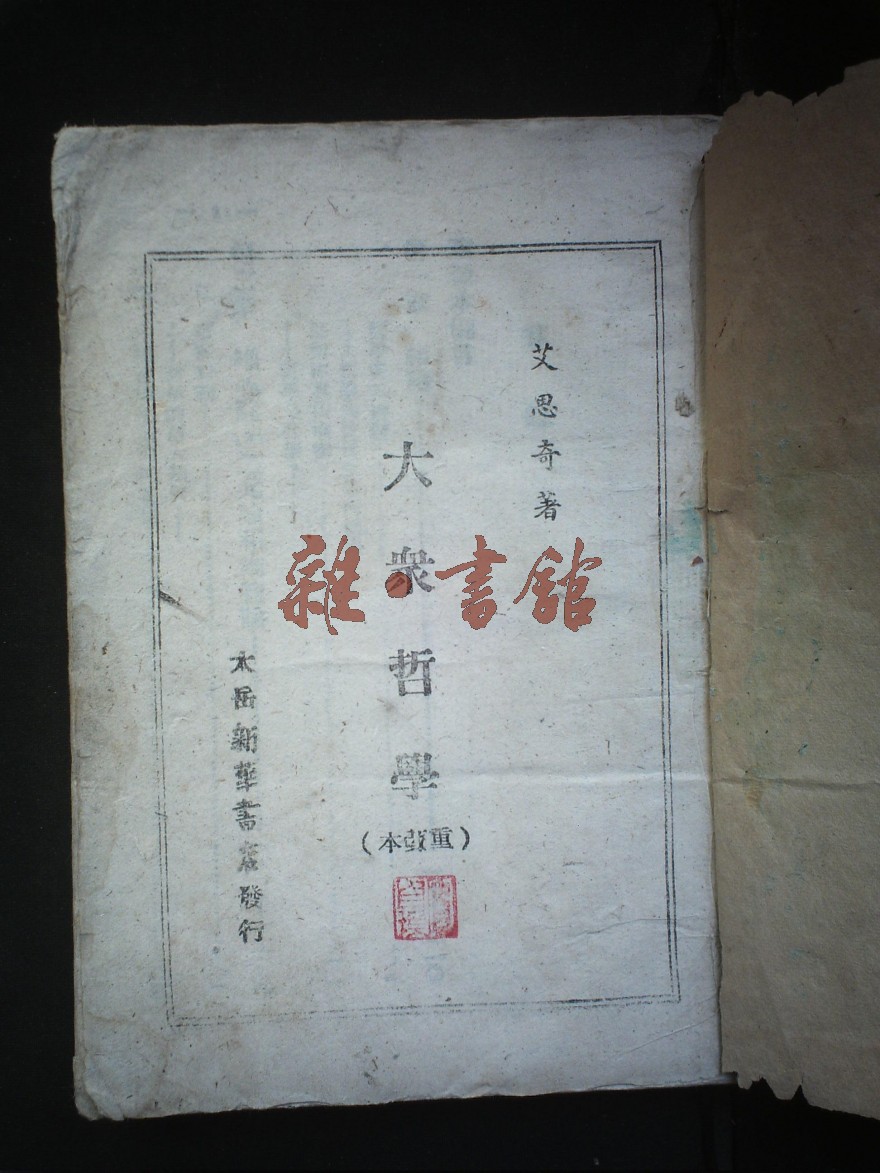 艾思奇著
大衆哲學
(重改本)
太岳新華書店發行
雜•書館